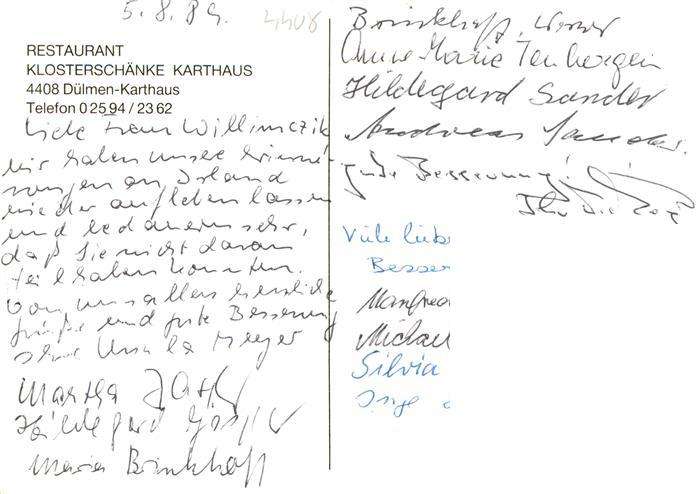 5.8.89.
4408
RESTAURANT
KLOSTERSCHÄNKE KARTHAUS
4408 Dülmen-Karthaus
Telefon 0 25 94 / 23 62
Liebe Frau Willimczik
wir haben unsere Erinne-
rungen an Island
wieder aufleben lassen
und bedauern sehr,
daß Sie nicht daran
teilhaben konnten.
Von uns allen herzliche
Grüße und gute Besserung
Ihre Ursula Meyer
Martha
Hildegard
Maria Brinkhoff
Brinkhoff, Werner
Anne-Marie Tenbergen
Hildegard Sander
Andreas Sander.
gute Besserung!
Ihr
Viele liebe
Besser
Manfred
Michael
Silvia
Inge